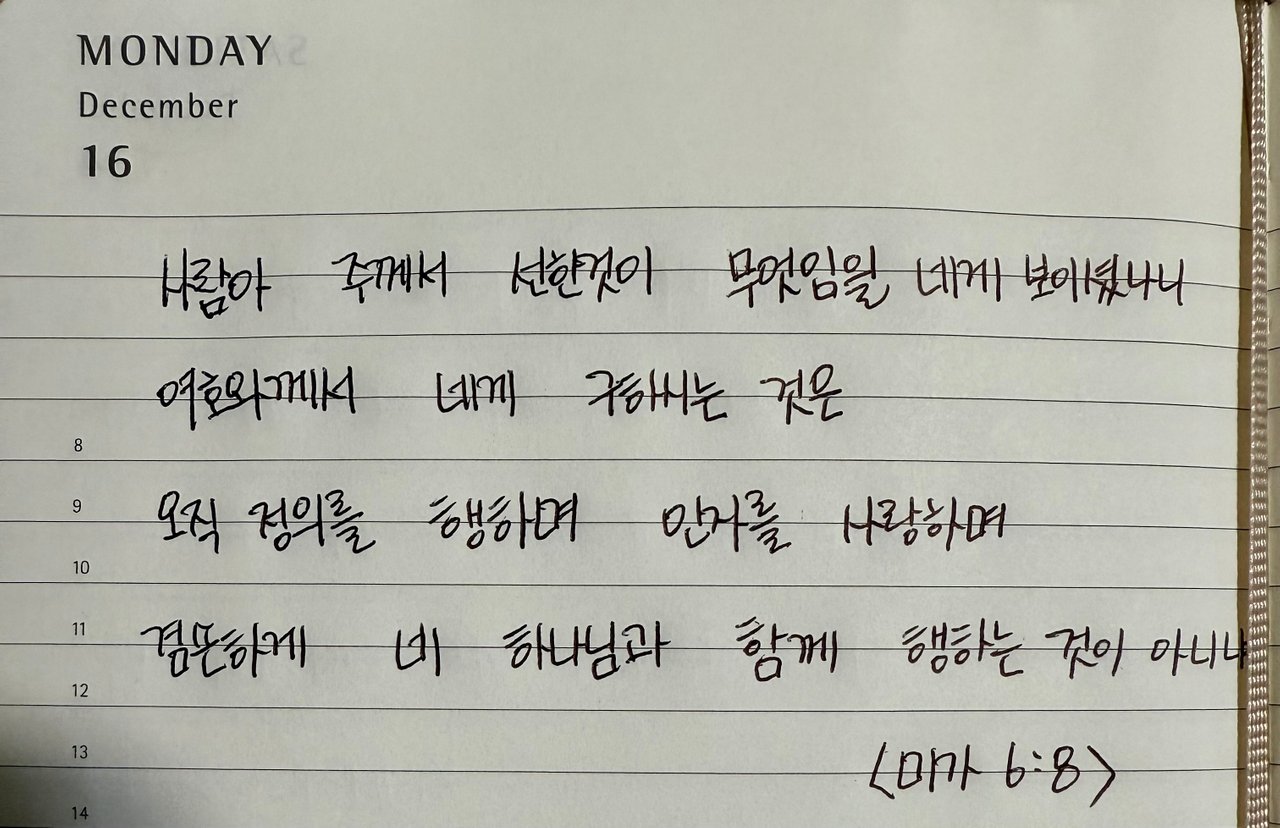 MONDAY
December
16
사람아 주께서 선한것이 무엇임일 네게 보이셨나니
여호와께서 네게 구하시는 것은
8
오직 정의를 행하며 인자를 사랑하며
9
10
겸문하게 네 하나님과 함께 행하는 것이 아니냐
11
12
<미가 6:8>
13
14